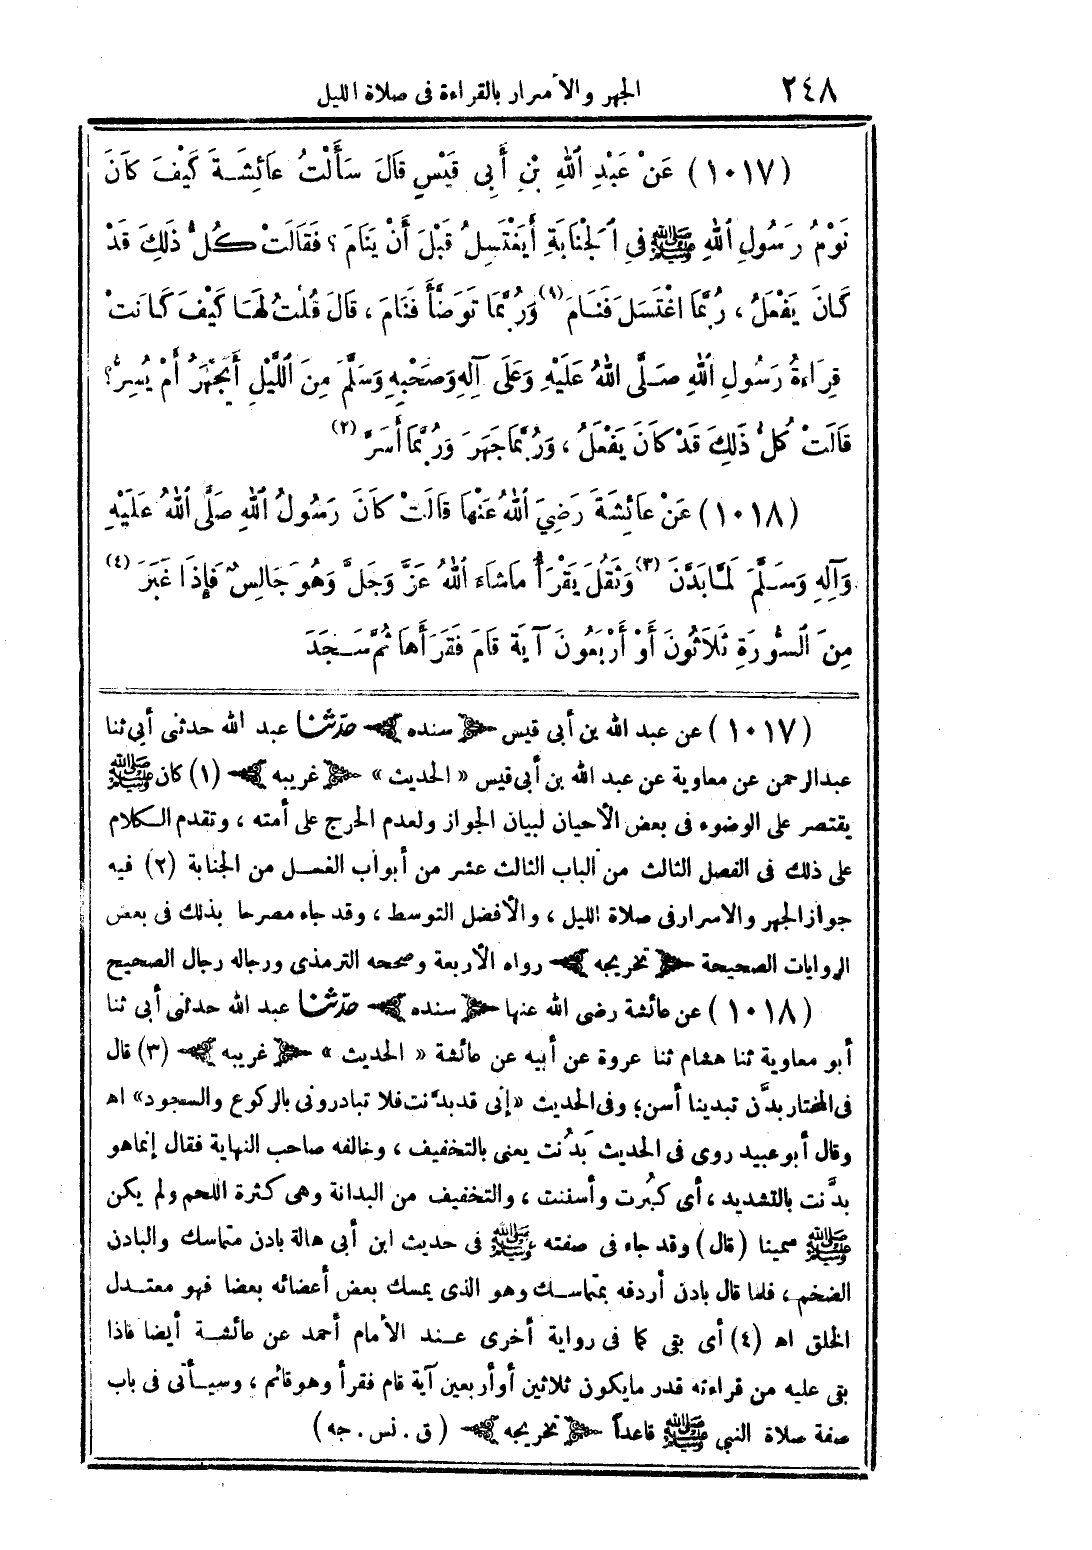 ٢٤٨ الجهر والأسرار بالقراءة فى صلاة الليل
(١٠١٧) عَنْ عَبْدِ اللهِ بْنِ أَبِى قَيْسٍ قَالَ سَأَلْتُ عَائِشَةَ كَيْفَ كَانَ
نَوْمُ رَسُولِ اللهِ ﷺ فِى الْجَنَابَةِ أَيَغْتَسِلُ قَبْلَ أَنْ يَنَامَ ؟ فَقَالَتْ كُلُّ ذَلِكَ قَدْ
كَانَ يَفْعَلُ ، رُبَّمَا اغْتَسَلَ فَنَامَ (١) وَرُبَّمَا تَوَضَّأَ فَنَامَ ، قَالَ قُلْتُ لَهَا كَيْفَ كَانَتْ
قِرَاءَةُ رَسُولِ اللهِ صَلَّى اللهُ عَلَيْهِ وَعَلَى آلِهِ وَصَحْبِهِ وَسَلَّمَ مِنَ اللَّيْلِ أَيَجْهَرُ أَمْ يُسِرُّ ؟
قَالَتْ كُلُّ ذَلِكَ قَدْ كَانَ يَفْعَلُ ، وَرُبَّمَا جَهَرَ وَرُبَّمَا أَسَرَّ (٢)
(١٠١٨) عَنْ عَائِشَةَ رَضِيَ اللهُ عَنْهَا قَالَتْ كَانَ رَسُولُ اللهِ صَلَّى اللهُ عَلَيْهِ
وَآلِهِ وَسَلَّمَ لَمَّا بَدَّنَ (٣) وَثَقُلَ يَقْرَأُ مَا شَاءَ اللهُ عَزَّ وَجَلَّ وَهُوَ جَالِسٌ فَإِذَا غَبَرَ (٤)
مِنَ السُّورَةِ ثَلَاثُونَ أَوْ أَرْبَعُونَ آيَةً قَامَ فَقَرَأَهَا ثُمَّ سَجَدَ
(١٠١٧) عن عبد الله بن أبى قيس ﴿ سنده ﴾ حدثنا عبد الله حدثنى أبى ثنا
عبدالرحمن عن معاوية عن عبد الله بن أبى قيس « الحديث » ﴿ غريبه ﴾ (١) كان ﷺ
يقتصر على الوضوء فى بعض الأحيان لبيان الجواز ولعدم الحرج على أمته ، وتقدم الكلام
على ذلك فى الفصل الثالث من الباب الثالث عشر من أبواب الغسل من الجنابة (٢) فيه
جواز الجهر والاسرار فى صلاة الليل ، والأفضل التوسط ، وقد جاء مصرحا بذلك فى بعض
الروايات الصحيحة ﴿ تخريجه ﴾ رواه الأربعة وصححه الترمذى ورجاله رجال الصحيح
(١٠١٨) عن عائشة رضى الله عنها ﴿ سنده ﴾ حدثنا عبد الله حدثنى أبى ثنا
أبو معاوية ثنا هشام ثنا عروة عن أبيه عن عائشة « الحديث » ﴿ غريبه ﴾ (٣) قال
فى المختار بدَّن تبدينا أسن؛ وفى الحديث « إنى قد بدَّنت فلا تبادرونى بالركوع والسجود » اهـ
وقال أبو عبيد روى فى الحديث بَدُنت يعنى بالتخفيف ، وخالفه صاحب النهاية فقال إنما هو
بدَّنت بالتشديد ، أى كبُرت وأسننت ، والتخفيف من البدانة وهى كثرة اللحم ولم يكن
ﷺ سمينا (قال) وقد جاء فى صفته ﷺ فى حديث ابن أبى هالة بادن متماسك والبادن
الضخم ، فلما قال بادن أردفه بمتماسك وهو الذى يمسك بعض أعضائه بعضا فهو معتدل
الخلق اهـ (٤) أى بقى كما فى رواية أخرى عند الأمام أحمد عن عائشة أيضا فاذا
بقى عليه من قراءته قدر مايكون ثلاثين أو أربعين آية قام فقرأ وهو قائم ، وسيأتى فى باب
صفة صلاة النبى ﷺ قاعداً ﴿ تخريجه ﴾ (ق . نس . جه)